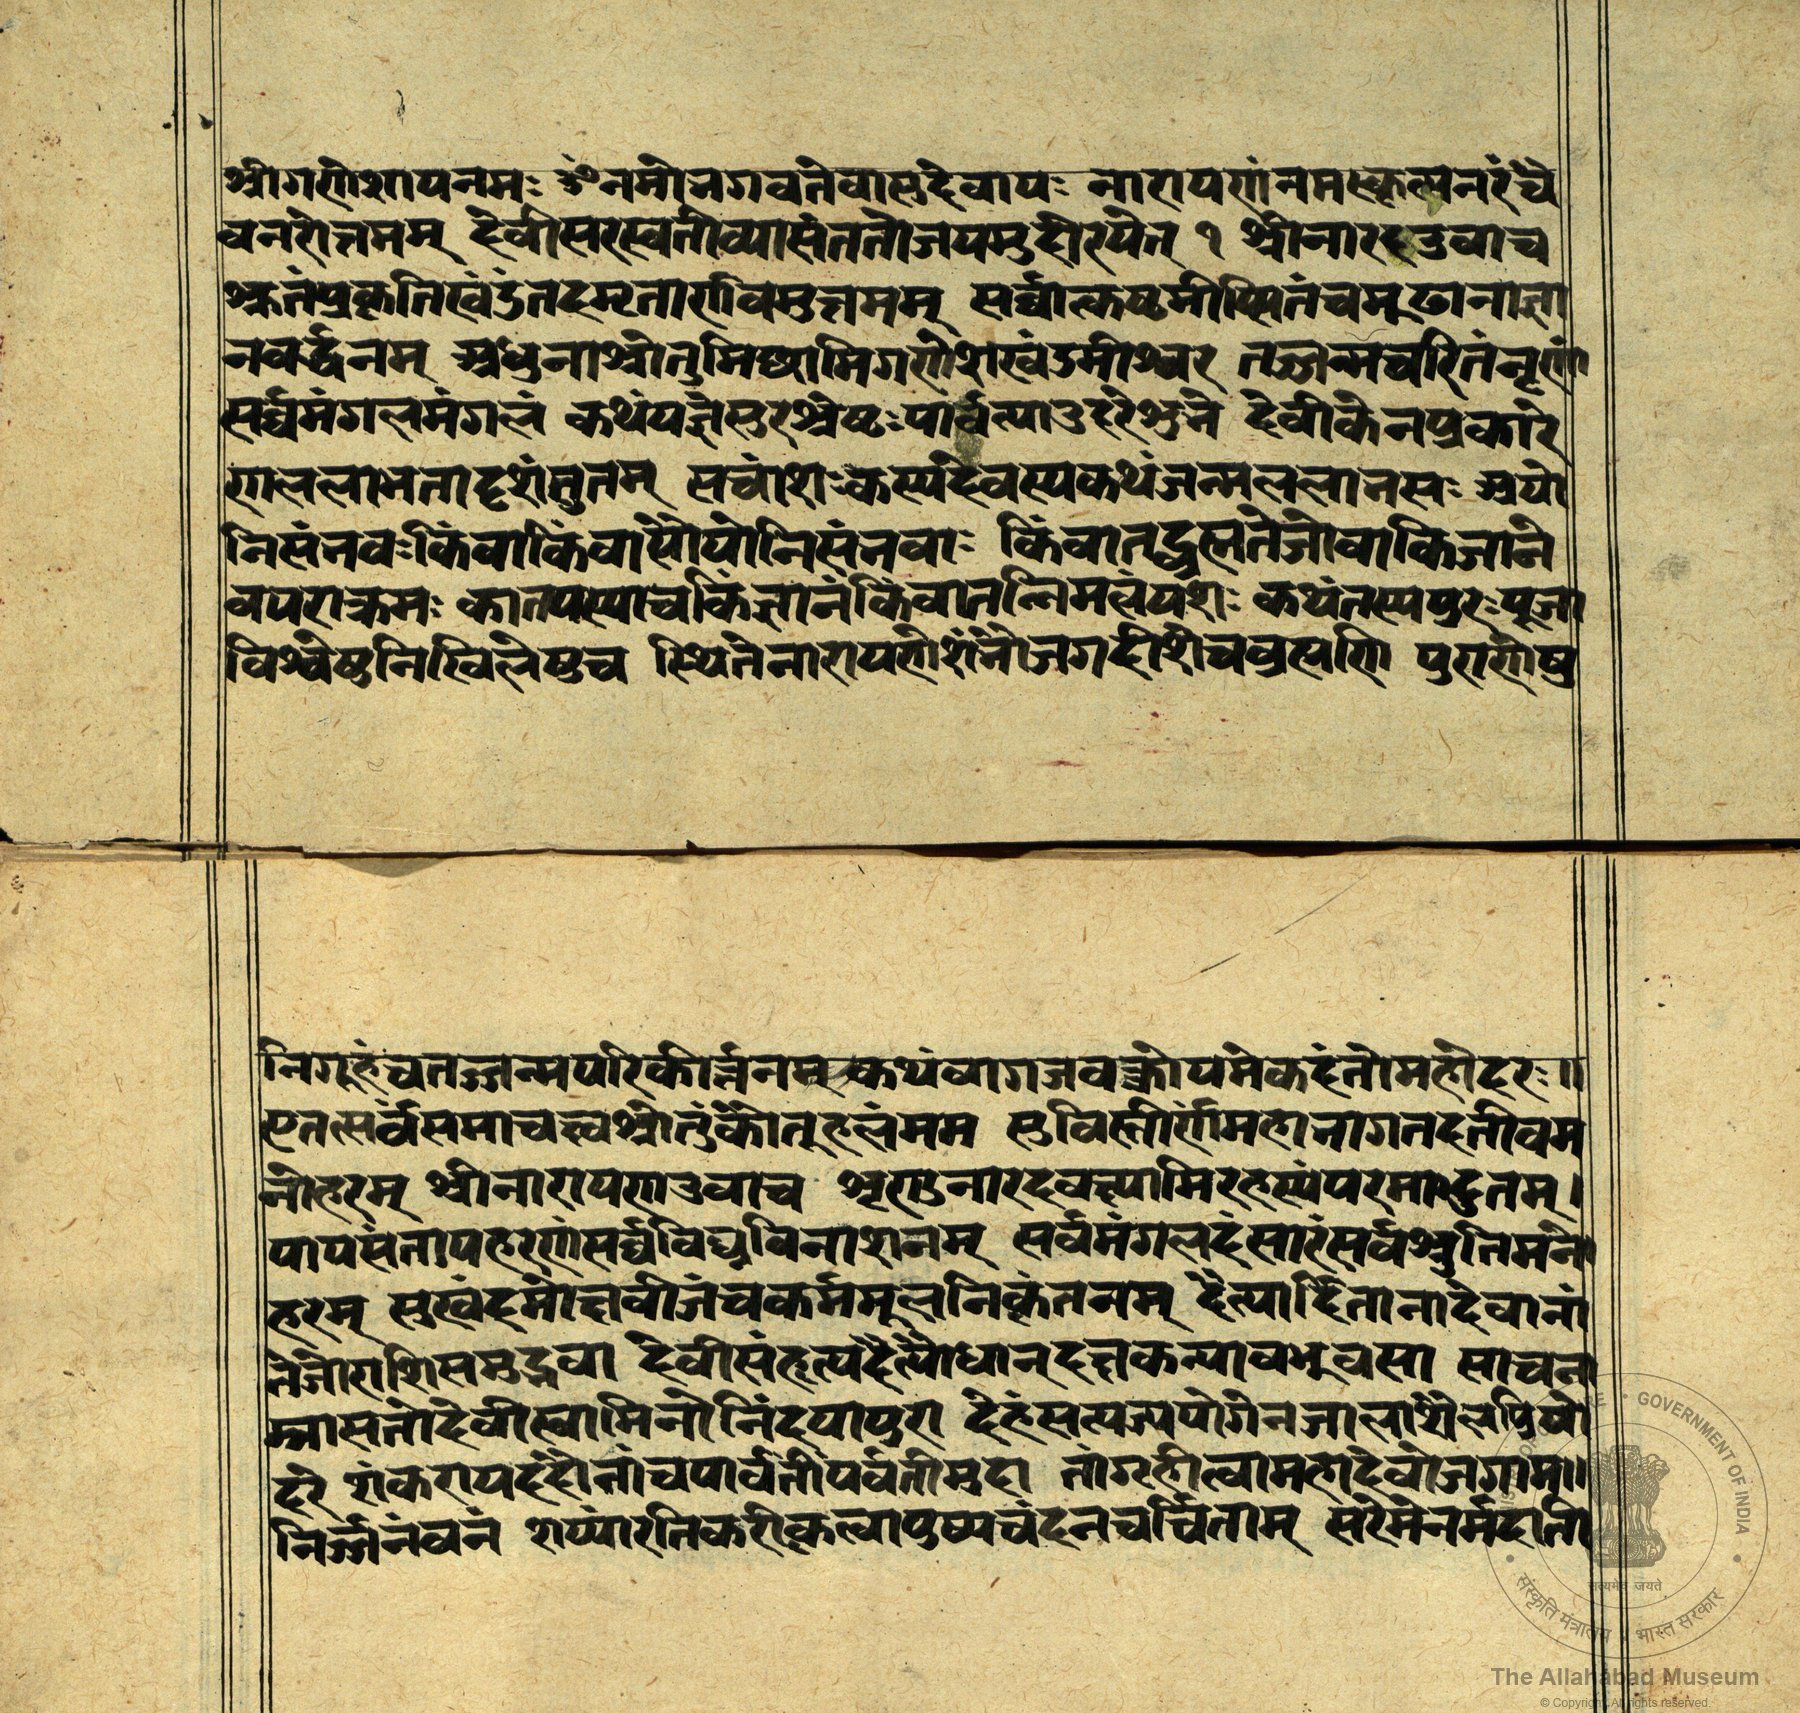 श्रीगणेशायनमः ॐनमोभगवतेवासुदेवायः नारायणंनमस्कृत्यनरंचै
वनरोत्तमम् देवीसरस्वतीव्यासंततोजयमुदीरयेत् १ श्रीनारदउवाच
श्रुतंप्रकृतिखंडंतदमृतार्णवमुत्तमम् सर्वोत्कष्टमीप्सितंचमूढानाज्ञा
नवर्द्धनम् अधुनाश्रोतुमिछामिगणेशखंडमीश्वर तज्जन्मचरितंनृणां
सर्व्वमंगलमंगलं कथंयज्ञेसुरश्रेष्टःपार्वत्याउदरेशुभे देवीकेनप्रकारे
णललाभतादृशंसुतम् सचांशःकस्यदेवस्यकथंजन्मललाभसः अयो
निसंभवःकिंवाकिंवायोयोनिसंभवाः किंवातद्ब्रह्मतेजोवाकिंजाने
वपराक्रमः कातपस्याचकिंज्ञानंकिंवातन्निमलंयशः कथंतस्यपुरःपूजा
विश्वेषुनिखिलेषुच स्थितेनारायणेशंभोजगदीशेचब्रह्मणि पुराणेषु
निगूढंचतज्जन्मपरिकीर्त्तनम् कथंवागजवक्त्रोयमेकदंतोमहोदरः॥
एतत्सर्वसमाचक्ष्वश्रोतुंकौतूहलंमम सुविस्तीर्णंमहाभागतदतीवम
नोहरम् श्रीनारायणउवाच शृणुनारदवक्ष्यामिरहस्यंपरमाद्भुतम्।
पापसंतापहरणंसर्व्वविघ्नविनाशनम् सर्वमंगलदंसारंसर्वश्रुतिमनो
हरम् सुखदंमोक्षवीजंचकर्ममूलनिकृंतनम् दैत्यार्दितानादेवानां
तेजोराशिसमुद्भवा देवीसंहृत्यदैत्यौघान्दक्षकन्यावभूवसा साचना
म्नासतीदेवीस्वामिनोनिंदयापुरा देहंसंत्यज्ययोगेनजाताशैलप्रियो
दरे शंकरायददौतांचपार्वतीपर्वतोमुदा तांगृहीत्वामहादेवोजगाम॥
निर्ज्जनंवनं शय्यांरतिकरीकृत्वापुष्पचंदनचर्चिताम् सरेमेनर्मदाती
The Allahabad Museum
© Copyright. All rights reserved.